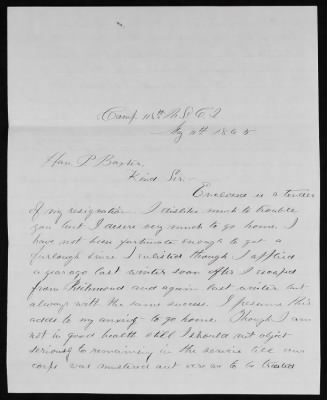 Camp 115th U.S.C.I.
May 11th 1865
Hon. P. Baxter,
Kind Sir.
Enclosed is a tender
of my resignation. I dislike much to trouble
you but I desire very much to go home. I
have not been fortunate enough to get a
furlough since I enlisted though I applied
a year ago last winter soon after I escaped
from Richmond and again last winter but
always with the same success. I presume this
adds to my anxiety to go home. Though I am
not in good health still I should not object
seriously to remaining in the service till our
corps was mustered out were we to be treated